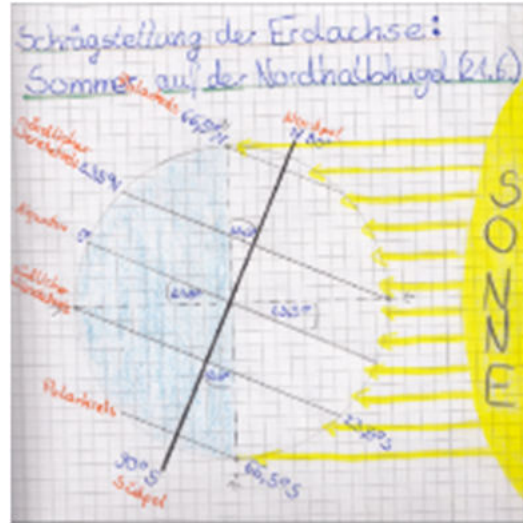 Schrägstellung der Erdachse:
Sommer auf der Nordhalbkugel (21.6.)
Polarkreis 66,5°N
Nordpol
N 90°
Nördlicher
Wendekreis 23,5°N
Äquator 0°
Südlicher
Wendekreis
23,5°
23,5°S
Polarkreis
66,5°S
90°S
Südpol
SONNE